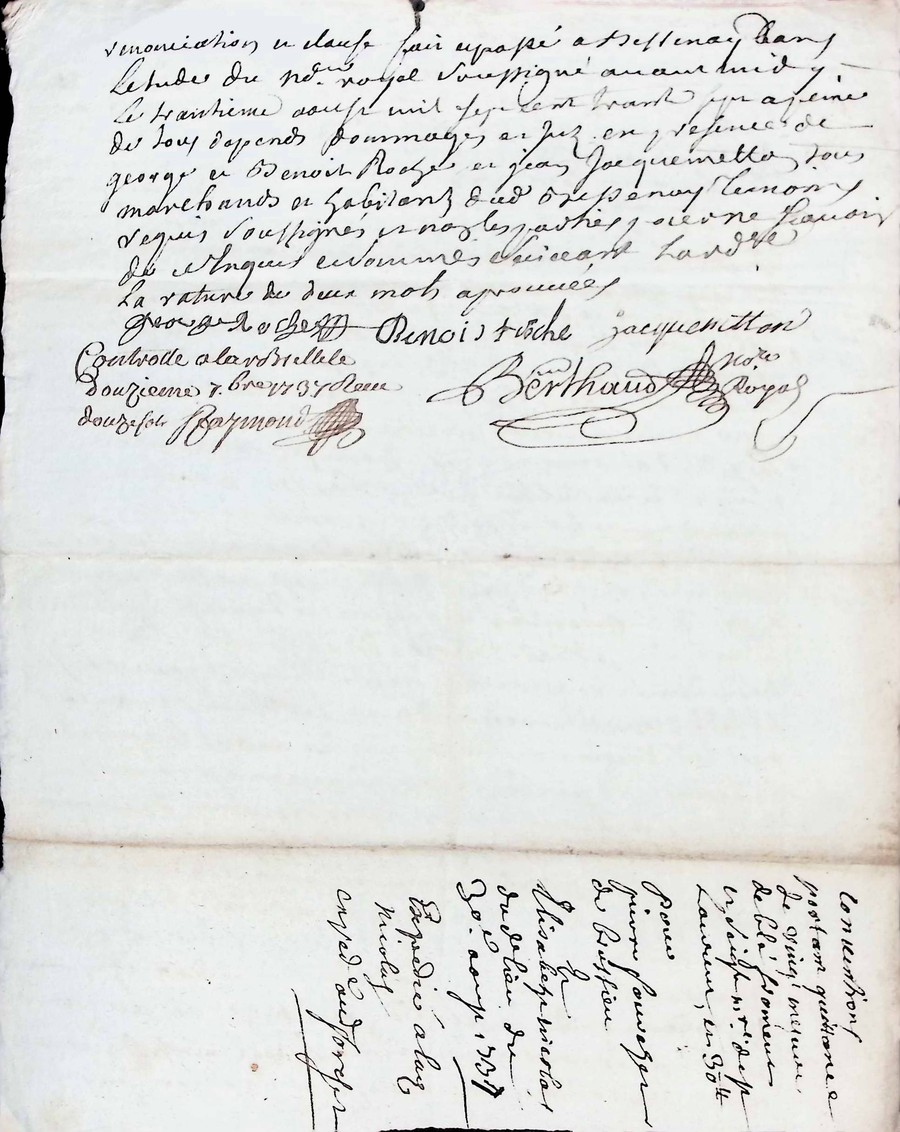 renonciation et clause fait et passé a Bessenay dans
Letude du nore royal soussigné avant midy
Le trantieme aoust mil sept cent trant sept a peine
de tous depends dommages et en presence de
george et Benoit Roche et jean Jacquemetton tous
marchands et habitants dud Bessenay temoins
requis soussignés et non les parties pour ne scavoir
de ce enquis et sommés
La rature de deux mots aprouvées
George Roche Benoist Roche Jacquemetton
Berthaud nore Royal
Controlle a
Douzieme 7.bre 1737 Recu
douze sols Raymond
Conventions
portant quittance
de vingt mesures
de blé froment
et
en 30ll
Pour
pierre
de Bussieu
Et
Elisabeth nicolas
dud lieu du
30e aoust 1737
Expedié a lad
nicolas